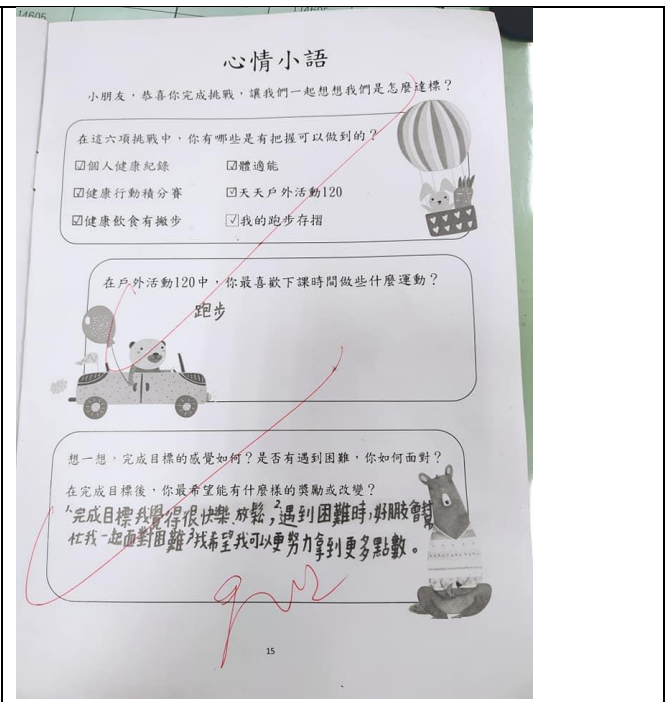 14605
心情小語
小朋友，恭喜你完成挑戰，讓我們一起想想我們是怎麼達標？
在這六項挑戰中，你有哪些是有把握可以做到的？
☑個人健康紀錄 ☑體適能
☑健康行動積分賽 ☑天天戶外活動120
☑健康飲食有撇步 ☑我的跑步存摺
在戶外活動120中，你最喜歡下課時間做些什麼運動？
跑步
想一想，完成目標的感覺如何？是否有遇到困難，你如何面對？
在完成目標後，你最希望能有什麼樣的獎勵或改變？
1.完成目標我覺得很快樂、放鬆，2.遇到困難時，好朋友會幫
忙我一起面對困難3.我希望我可以更努力拿到更多點數。
15